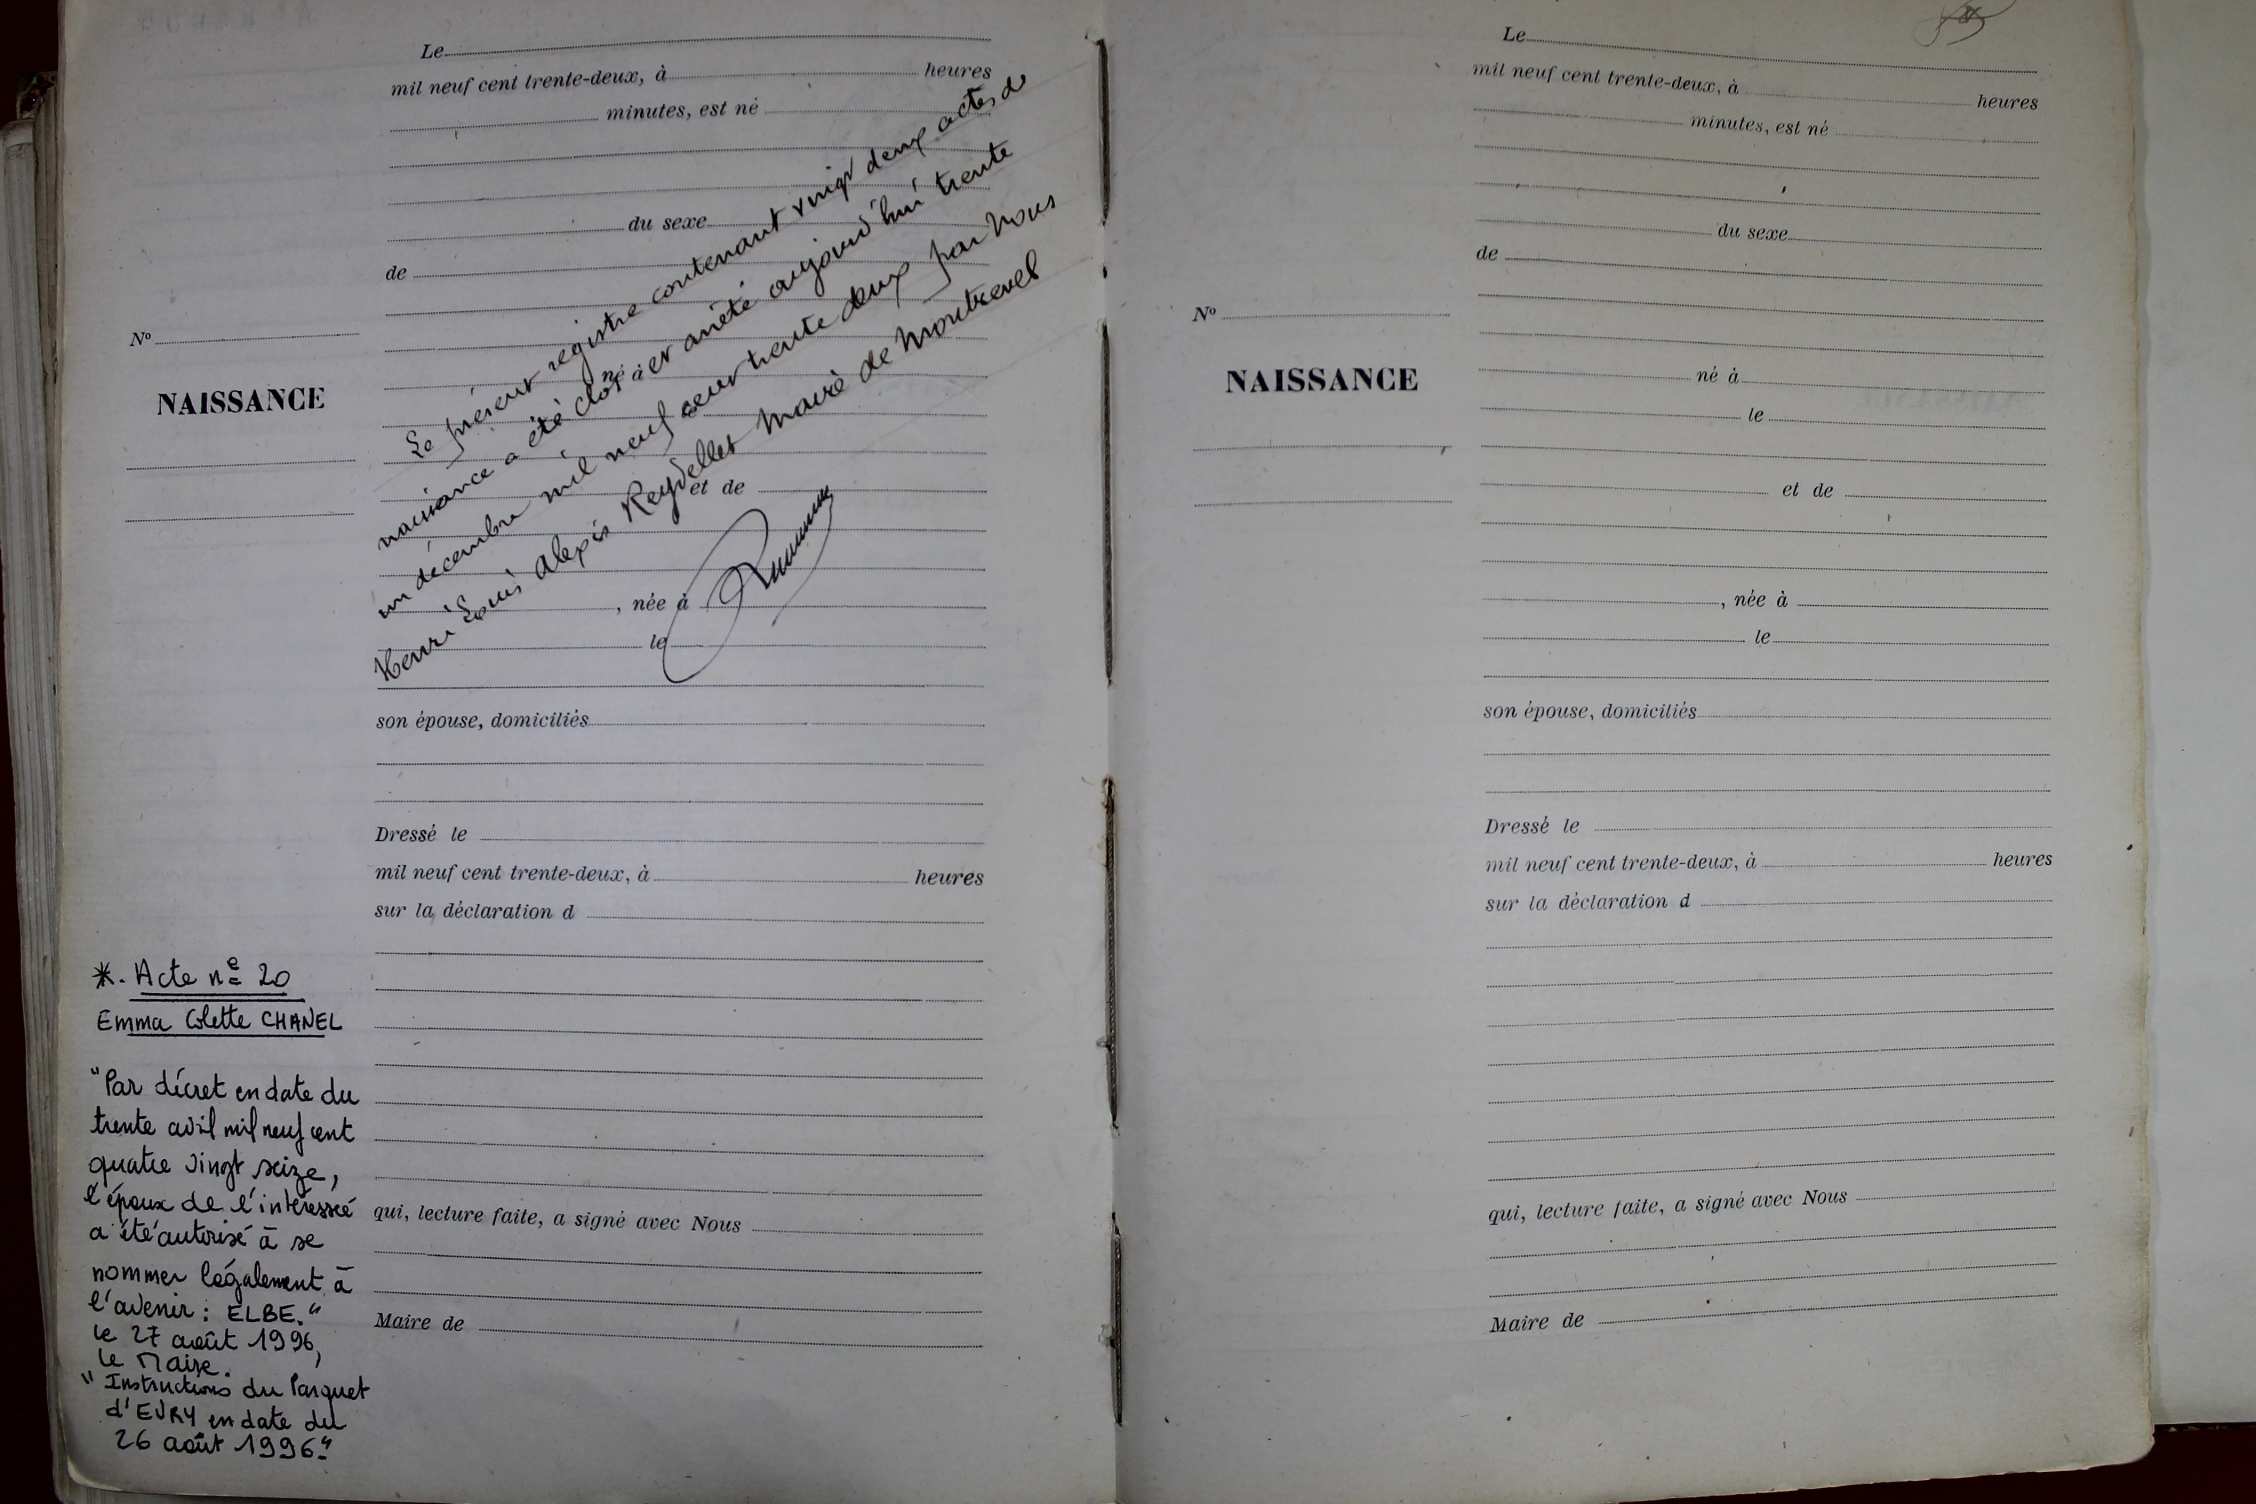 Le
mil neuf cent trente-deux, à heures
minutes, est né
du sexe
de
né à
et de
, née à
le
son épouse, domiciliés
Dressé le
mil neuf cent trente-deux, à heures
sur la déclaration d
qui, lecture faite, a signé avec Nous
Maire de
Le présent registre contenant vingt deux actes de
naissance a été clos et arrêté aujourd'hui trente
un décembre mil neuf cent trente deux par Nous
Henri Louis Alexis Reydellet Maire de Montrevel
No
NAISSANCE
*. Acte no 20
Emma Colette CHANEL
"Par décret en date du
trente avril mil neuf cent
quatre vingt seize,
l'époux de l'intéressée
a été autorisé à se
nommer légalement à
l'avenir : ELBE."
le 27 août 1996,
le Maire.
"Instructions du Parquet
d'EVRY en date du
26 août 1996"
Le
mil neuf cent trente-deux, à heures
minutes, est né
du sexe
de
né à
le
et de
, née à
le
son épouse, domiciliés
Dressé le
mil neuf cent trente-deux, à heures
sur la déclaration d
qui, lecture faite, a signé avec Nous
Maire de
No
NAISSANCE